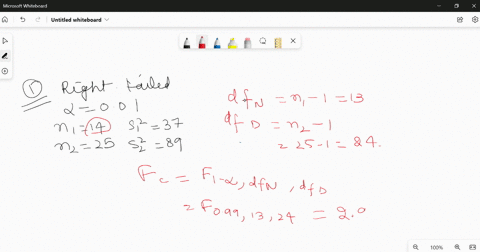 Microsoft Whiteboard
Untitled whiteboard
① Right Failed
α = 0.01
n₁ = 14 s₁² = 37
n₂ = 25 s₂² = 89
dfN = n₁ - 1 = 13
dfD = n₂ - 1
= 25-1 = 24.
Fc = F1-α, dfN, dfD
= F0.99, 13, 24 = 2.9
100%